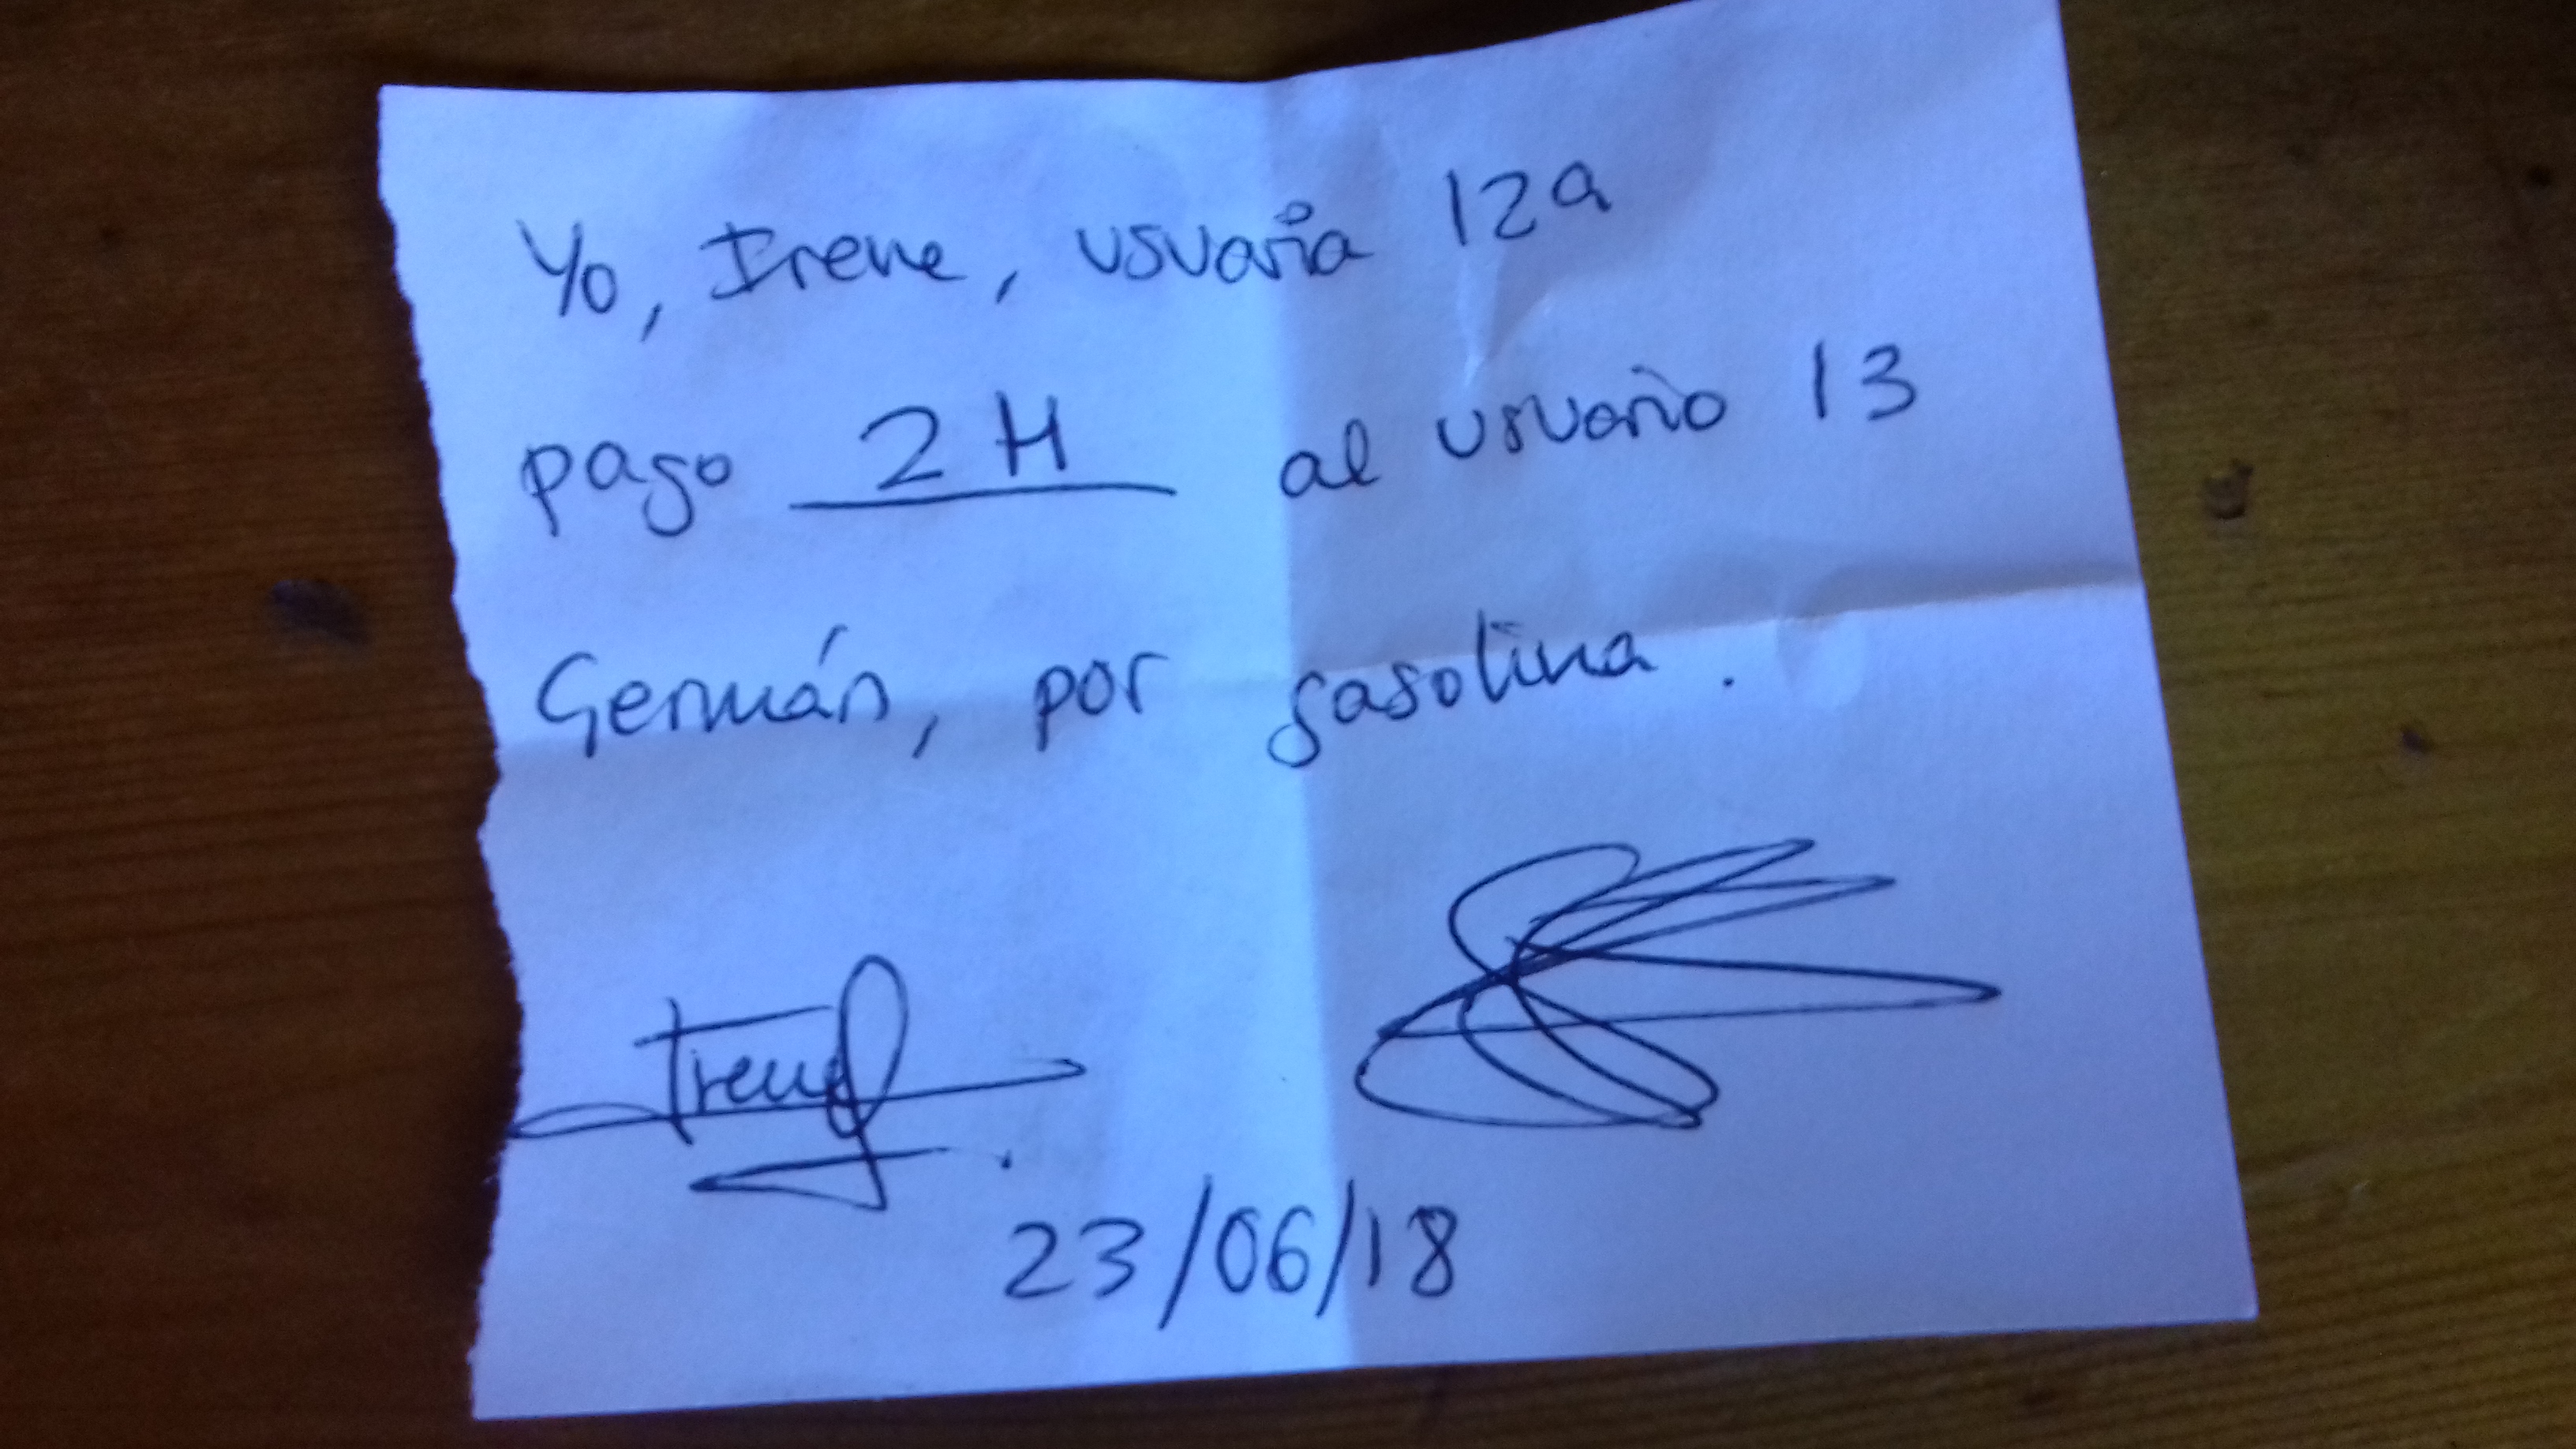 Yo, Irene, usuaria 12a
pago 2 H al usuario 13
Germán, por gasolina.
Irene
23/06/18